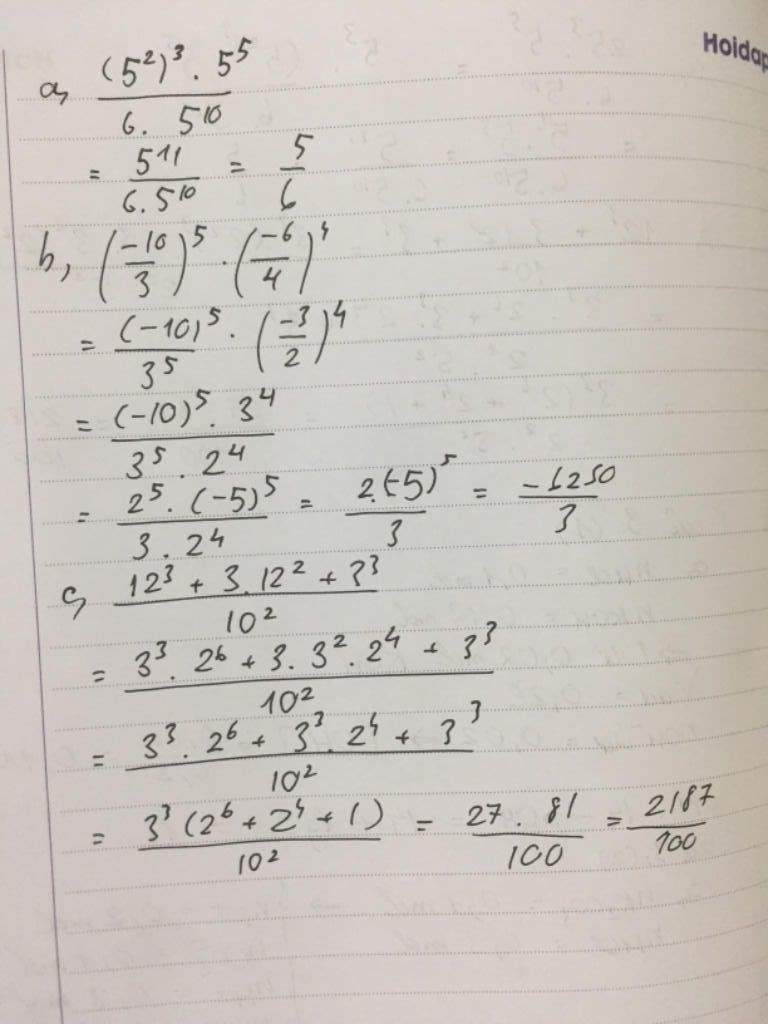 Hoidap
a, \frac{(5^2)^3 . 5^5}{6. 5^{10}}
= \frac{5^{11}}{6.5^{10}} = \frac{5}{6}
b, (\frac{-10}{3})^5 . (\frac{-6}{4})^4
= \frac{(-10)^5}{3^5} . (\frac{-3}{2})^4
= \frac{(-10)^5 . 3^4}{3^5 . 2^4}
= \frac{2^5 . (-5)^5}{3 . 2^4} = \frac{2.(-5)^5}{3} = \frac{-1250}{3}
c, \frac{12^3 + 3.12^2 + 3^3}{10^2}
= \frac{3^3 . 2^6 + 3. 3^2 . 2^4 + 3^3}{10^2}
= \frac{3^3 . 2^6 + 3^3 . 2^4 + 3^3}{10^2}
= \frac{3^3 (2^6 + 2^4 + 1)}{10^2} = \frac{27 . 81}{100} = \frac{2187}{100}